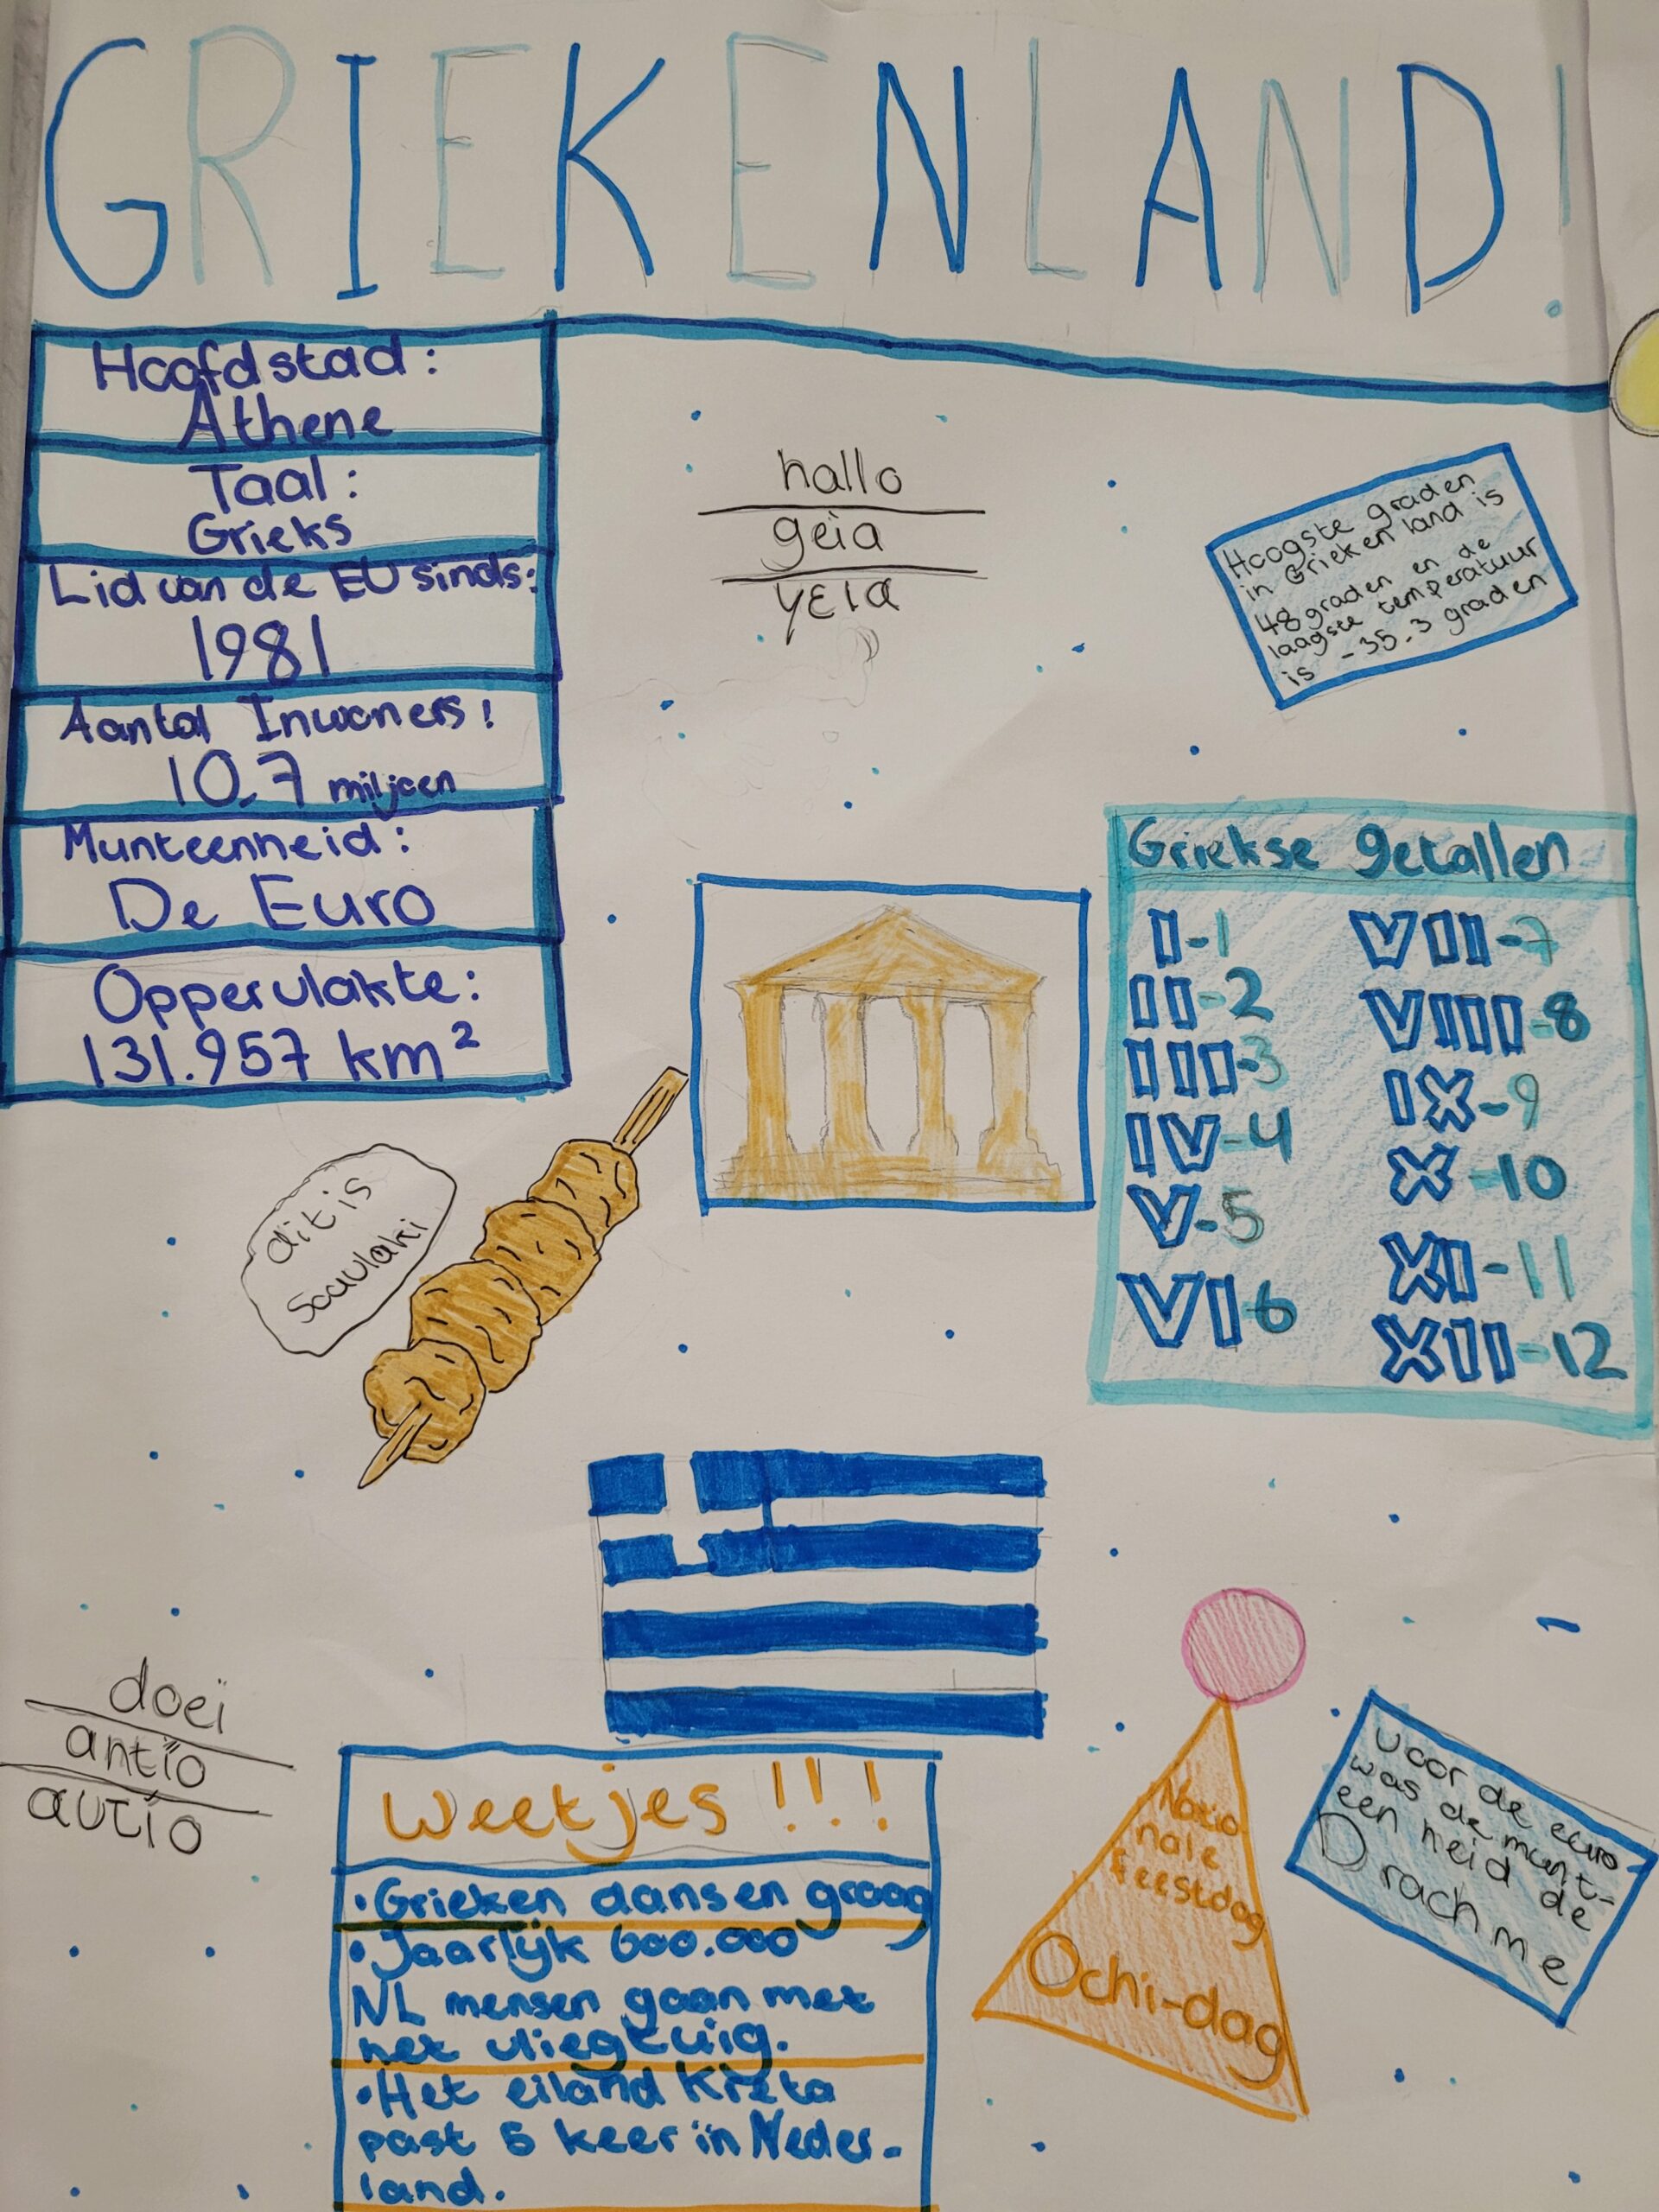 GRIEKENLAND!
Hoofdstad:
Athene
Taal:
Grieks
Lid van de EU sinds:
1981
Aantal Inwoners!
10.7 miljoen
Munteenheid:
De Euro
Oppervlakte:
131.957 km²
hallo
geìa
γεια
Hoogste graden
in Grieken land is
48 graden en de
laagste temperatuur
is -35.3 graden
Griekse getallen
I-1
II-2
III-3
IV-4
V-5
VI-6
VII-7
VIII-8
IX-9
X-10
XI-11
XII-12
dit is
soavlaki
doeï
antïo
αυτίο
Weetjes!!!
• Grieken dansen graag
• Jaarlijk 600.000
NL mensen gaan met
het vliegtuig.
• Het eiland Kreta
past 5 keer in Neder-
land.
Natio
nale
feestdag
Ochi-dag
voor de euro
was de munt-
een heid de
Drachme